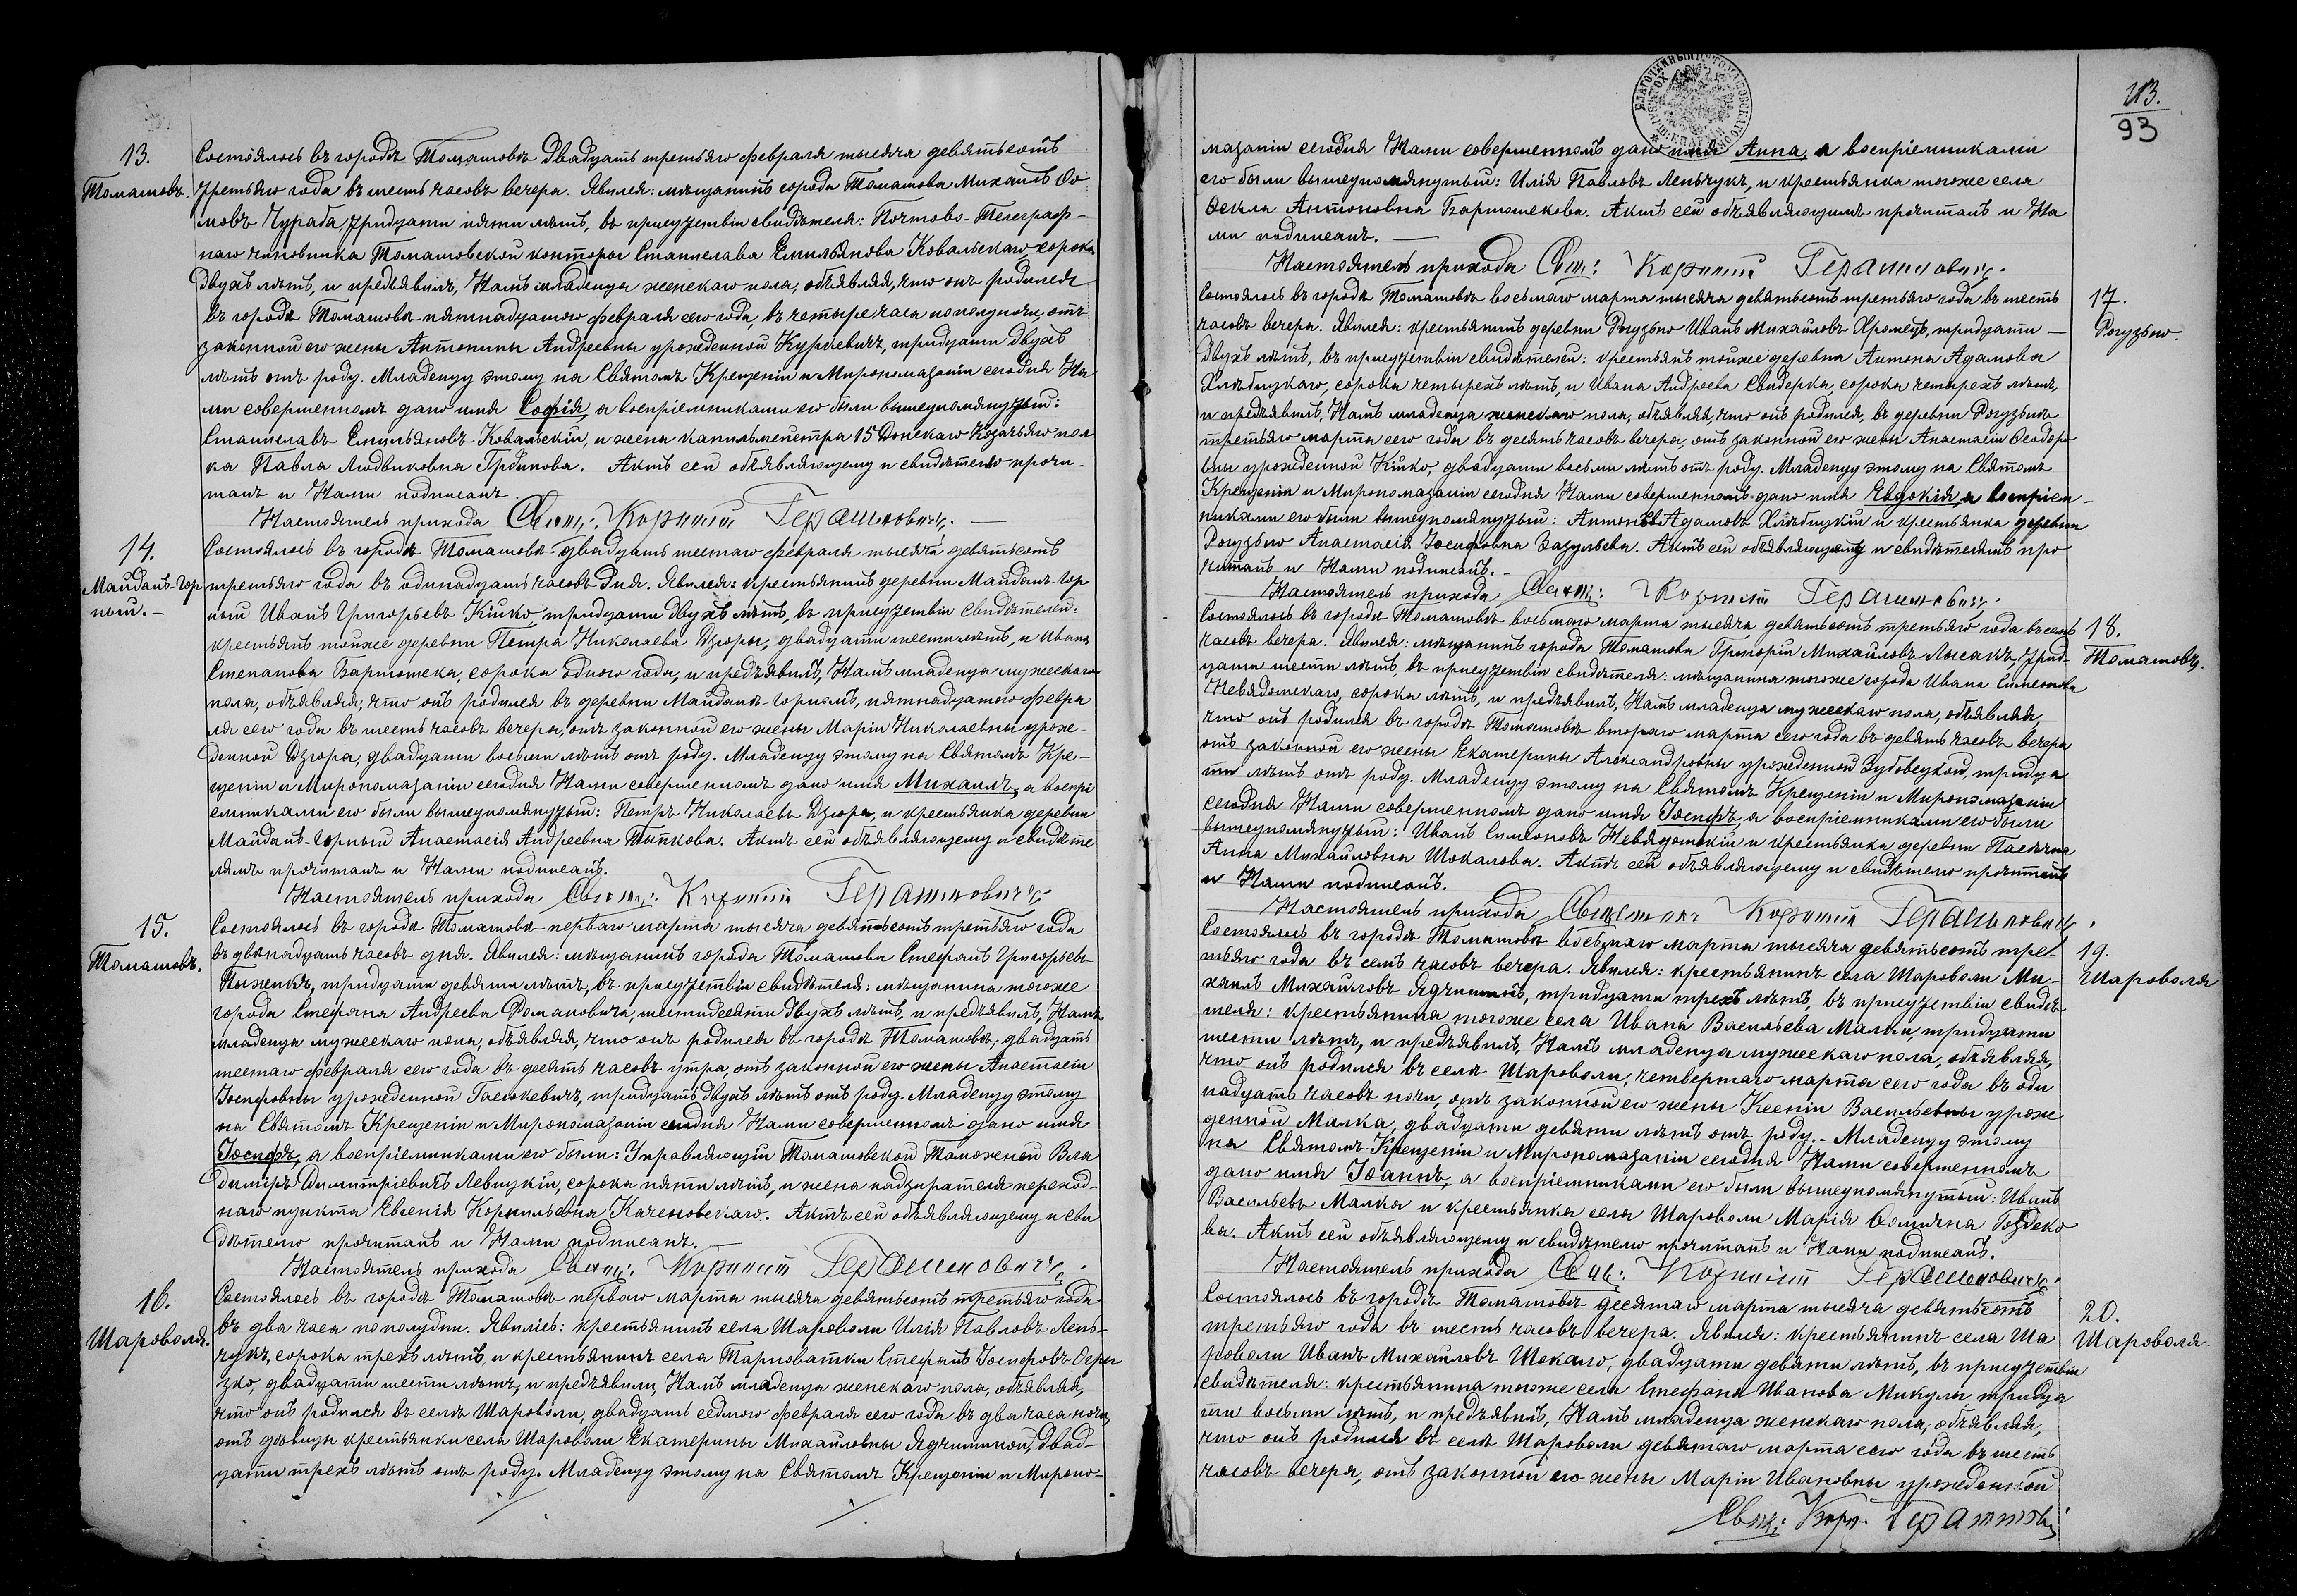 13.
Томашовъ.
Состоялось въ городѣ Томашовѣ двадцать третьяго февраля тысяча девятьсотъ
третьяго года въ шесть часовъ вечера. Явился: мѣщанинъ города Томашова Михаилъ Ѳо
мовъ Чураба, тридцати пяти лѣтъ, въ присутствіи свидѣтеля: Почтово-Телеграф-
наго чиновника Томашовской конторы Станислава Емильянова Ковальскаго, сорока
двухъ лѣтъ, и предъявилъ Намъ младенца женскаго пола, объявляя, что онъ родился
въ городѣ Томашовѣ пятнадцатаго февраля сего года, въ четыре часа пополуночи, отъ
законной его жены Антонины Андреевны урожденной Курѣевичъ, тридцати двухъ
лѣтъ отъ роду. Младенцу этому на Святомъ Крещеніи и Миропомазаніи сегодня На
ми совершенномъ дано имя Софія, а воспріемниками его были вышеупомянутый:
Станиславъ Емильяновъ Ковальскій, и жена капельмейстра 15 Донскаго Козачьяго пол
ка Павла Людвиковна Грдинова. Актъ сей объявляющему и свидѣтелю прочи-
танъ и Нами подписанъ.
Настоятель прихода Свящ: Корнилій Герашковичъ.
14.
Майданъ-Гор
ный.
Состоялось въ городѣ Томашовѣ двадцать шестаго февраля тысяча девятьсотъ
третьяго года въ одинадцать часовъ дня. Явился: крестьянинъ деревни Майданъ-Гор
ный Иванъ Григорьевъ Кійко, тридцати двухъ лѣтъ, въ присутствіи свидѣтелей:
крестьянъ тойже деревни Петра Николаева Дзюры, двадцати шести лѣтъ, и Ивана
Степанова Бартошека, сорока одного года, и предъявилъ Намъ младенца мужескаго
пола, объявляя, что онъ родился въ деревни Майданѣ-Горномъ, пятнадцатаго февра
ля сего года въ шесть часовъ вечера, отъ законной его жены Маріи Николаевны урож-
денной Дзюра, двадцати восьми лѣтъ отъ роду. Младенцу этому на Святомъ Кре-
щеніи и Миропомазаніи сегодня Нами совершенномъ дано имя Михаилъ, а воспрі
емниками его были вышеупомянутый: Петръ Николаевъ Дзюра, и крестьянка деревни
Майданъ-Горный Анастасія Андреевна Титкова. Актъ сей объявляющему и свидѣте
лямъ прочитанъ и Нами подписанъ.
Настоятель прихода Свящ: Корнилій Герашковичъ
15.
Томашовъ.
Состоялось въ городѣ Томашовѣ перваго марта тысяча девятьсотъ третьяго года
въ двѣнадцать часовъ дня. Явился: мѣщанинъ города Томашова Стефанъ Григорьевъ
Пыжикъ, тридцати девяти лѣтъ, въ присутствіи свидѣтеля: мѣщанина тогоже
города Стефана Андреева Романовича, шестидесяти двухъ лѣтъ, и предъявилъ, Намъ
младенца мужескаго пола, объявляя, что онъ родился въ городѣ Томашовѣ, двадцать
шестаго февраля сего года въ десять часовъ утра, отъ законной его жены Анастасіи
Іосифовны урожденной Гаськевичъ, тридцать двухъ лѣтъ отъ роду. Младенцу этому
на Святомъ Крещеніи и Миропомазаніи сегодня Нами совершенномъ дано имя
Іосифъ, а воспріемниками его были: Управляющій Томашовской Таможней Вла
диміръ Димитріевичъ Левицкій, сорока пяти лѣтъ, и жена надзирателя переход-
наго пункта Евгенія Корнильевна Каченовскаго. Актъ сей объявляющему и сви
дѣтелю прочитанъ и Нами подписанъ.
Настоятель прихода Свящ: Корнилій Герашковичъ.
16.
Шароволя.
Состоялось въ городѣ Томашовѣ перваго марта тысяча девятьсотъ третьяго года
въ два часа пополудни. Явились: крестьянинъ села Шароволи Илія Павловъ Лень-
чукъ, сорока трехъ лѣтъ, и крестьянинъ села Тарноватки Стефанъ Іосифовъ Огры
зко, двадцати шести лѣтъ, и предъявили, Намъ младенца женскаго пола, объявляя,
что онъ родился въ селѣ Шароволи, двадцать седмого февраля сего года въ два часа ночи,
отъ дѣвицы крестьянки села Шароволи Екатерины Михайловны Ядчишиной, двад-
цати трехъ лѣтъ отъ роду. Младенцу этому на Святомъ Крещеніи и Миропо-
113.
93
мазаніи сегодня Нами совершенномъ дано имя Анна, а воспріемниками
его были вышеупомянутый: Илія Павловъ Леньчукъ, и крестьянка тогоже села
Ѳекла Антоновна Бартошекова. Актъ сей объявляющимъ прочитанъ и На
ми подписанъ.
Настоятель прихода Свящ: Корнилій Герашковичъ.
17.
Рогузьно.
Состоялось въ городѣ Томашовѣ восьмаго марта тысяча девятьсотъ третьяго года въ шесть
часовъ вечера. Явился: крестьянинъ деревни Рогузьно Иванъ Михайловъ Хромецъ, тридцати
двухъ лѣтъ, въ присутствіи свидѣтелей: крестьянъ тойже деревни Антона Адамова
Хлѣбицкаго, сорока четырехъ лѣтъ, и Ивана Андреева Свидерка, сорока четырехъ лѣтъ,
и предъявилъ, Намъ младенца женскаго пола, объявляя, что онъ родился, въ деревни Рогузьнѣ
третьяго марта сего года въ десять часовъ вечера, отъ законной его жены Анастасіи Ѳеодоро
вны урожденной Кійко, двадцати восьми лѣтъ отъ роду. Младенцу этому на Святомъ
Крещеніи и Миропомазаніи сегодня Нами совершенномъ дано имя Евдокія, а воспріем-
никами его были вышеупомянутый: Антонъ Адамовъ Хлѣбицкій и крестьянка деревни
Рогузьно Анастасія Іосифовна Зазульева. Актъ сей объявляющему и свидѣтелямъ про
читанъ и Нами подписанъ.
Настоятель прихода Свящ: Корнилій Герашковичъ.
18.
Томашовъ.
Состоялось въ городѣ Томашовѣ восьмаго марта тысяча девятьсотъ третьяго года въ семь
часовъ вечера. Явился: мѣщанинъ города Томашова Григорій Михайловъ Лысакъ, трид-
цати шести лѣтъ, въ присутствіи свидѣтеля: мѣщанина тогоже города Ивана Симеонова
Невядомскаго, сорока лѣтъ, и предъявилъ, Намъ младенца мужескаго пола, объявляя,
что онъ родился въ городѣ Томашовѣ втораго марта сего года въ девять часовъ вечера
отъ законной его жены Екатерины Александровны урожденной Зубовецкой, тридца
ти лѣтъ отъ роду. Младенцу этому на Святомъ Крещеніи и Миропомазаніи
сегодня Нами совершенномъ дано имя Іосифъ, а воспріемниками его были
вышеупомянутый: Иванъ Симеоновъ Невядомскій и крестьянка деревни Пасѣчна
Анна Михайловна Шокалова. Актъ сей объявляющему и свидѣтелю прочитанъ
и Нами подписанъ.
Настоятель прихода Священникъ Корнилій Герашковичъ.
19.
Шароволя
Состоялось въ городѣ Томашовѣ восьмаго марта тысяча девятьсотъ тре-
тьяго года въ семь часовъ вечера. Явился: крестьянинъ села Шароволи Ми-
хаилъ Михайловъ Ядчишинъ, тридцати трехъ лѣтъ, въ присутствіи свидѣ
теля: крестьянина тогоже села Ивана Васильева Малки, тридцати
шести лѣтъ, и предъявилъ, Намъ младенца мужескаго пола, объявляя,
что онъ родился въ селѣ Шароволи, четвертаго марта сего года въ оди
надцать часовъ ночи, отъ законной его жены Ксеніи Васильевны урож
денной Малка, двадцати девяти лѣтъ отъ роду. Младенцу этому
на Святомъ Крещеніи и Миропомазаніи сегодня Нами совершенномъ
дано имя Іоаннъ, а воспріемниками его были вышеупомянутый: Иванъ
Васильевъ Малка и крестьянка села Шароволи Марія Ѳомична Гоздеко
ва. Актъ сей объявляющему и свидѣтелю прочитанъ и Нами подписанъ.
Настоятель прихода Свящ: Корнилій Герашковичъ.
20.
Шароволя.
Состоялось въ городѣ Томашовѣ десятаго марта тысяча девятьсотъ
третьяго года въ шесть часовъ вечера. Явился: крестьянинъ села Ша
роволи Иванъ Михайловъ Шокало, двадцати девяти лѣтъ, въ присутствіи
свидѣтеля: крестьянина тогоже села Стефана Иванова Микулы тридца
ти восьми лѣтъ, и предъявилъ, Намъ младенца женскаго пола, объявляя,
что онъ родился въ селѣ Шароволи девятаго марта сего года въ шесть
часовъ вечера, отъ законной его жены Маріи Ивановны урожденной
Свящ: Корн. Герашковичъ